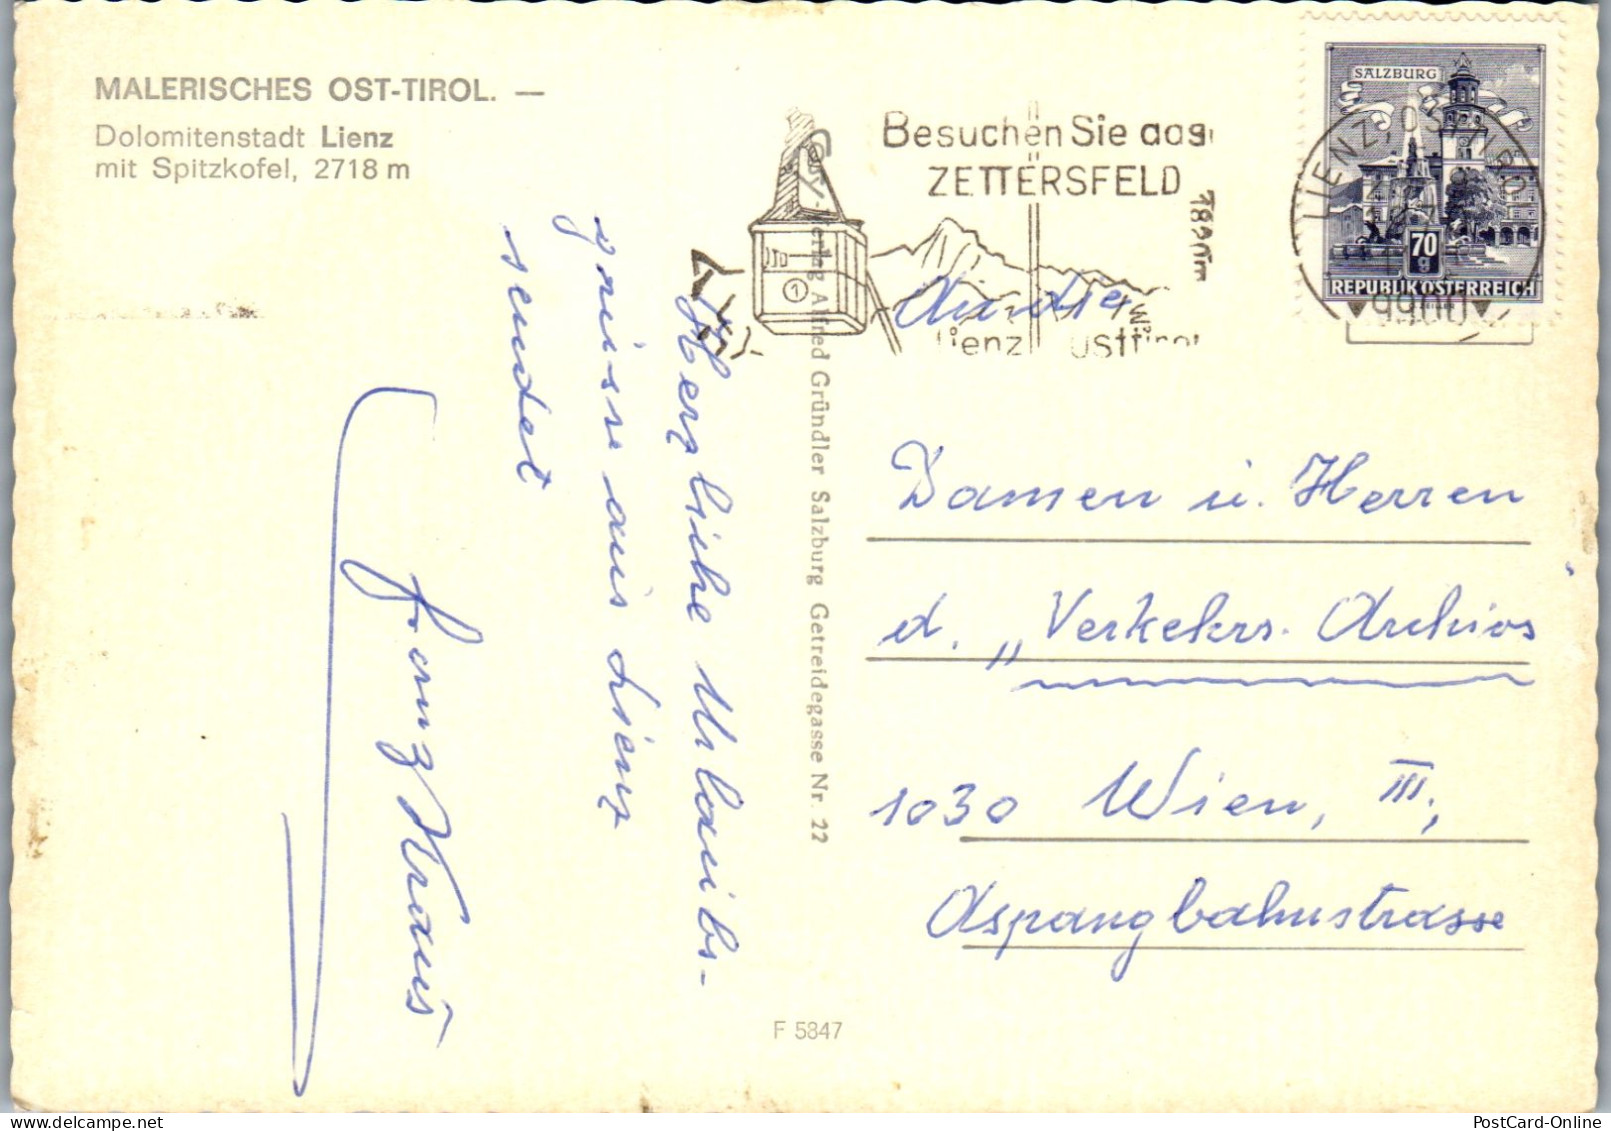 MALERISCHES OST-TIROL. —
Dolomitenstadt Lienz
mit Spitzkofel, 2718 m
Besuchen Sie das
ZETTERSFELD
Lienz Osttirol
1
SALZBURG
70
g
REPUBLIK ÖSTERREICH
LIENZ, OSTTIROL
9900
An die
Damen u. Herren
d. „Verkehrs-Archivs
1030 Wien, III,
Aspangbahnstrasse
Herzliche Urlaubs-
grüsse aus Lienz
sendet
Franz Kraus
Verlag Alfred Gründler Salzburg Getreidegasse Nr. 22
F 5847
PostCard-Online